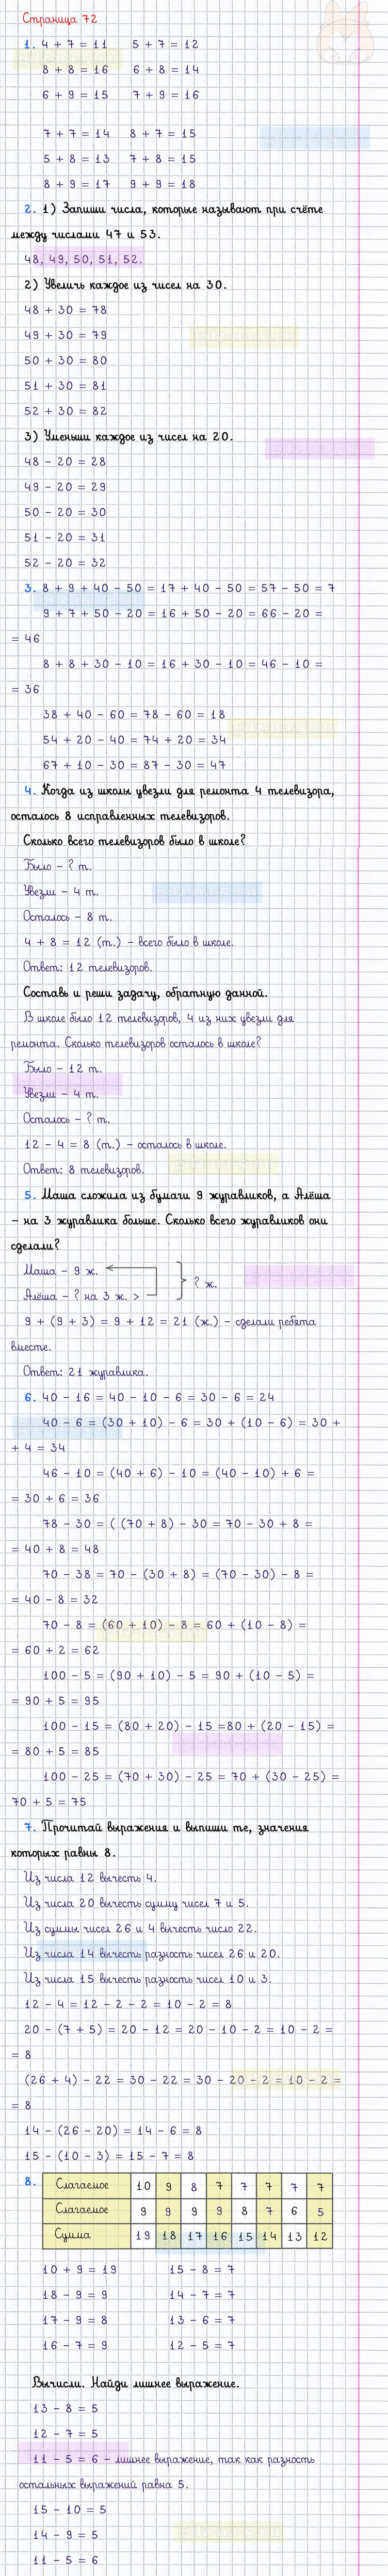 Страница 72
1. 4 + 7 = 11 5 + 7 = 12
8 + 8 = 16 6 + 8 = 14
6 + 9 = 15 7 + 9 = 16
7 + 7 = 14 8 + 7 = 15
5 + 8 = 13 7 + 8 = 15
8 + 9 = 17 9 + 9 = 18
2. 1) Запиши числа, которые называют при счёте
между числами 47 и 53.
48, 49, 50, 51, 52.
2) Увеличь каждое из чисел на 30.
48 + 30 = 78
49 + 30 = 79
50 + 30 = 80
51 + 30 = 81
52 + 30 = 82
3) Уменьши каждое из чисел на 20.
48 - 20 = 28
49 - 20 = 29
50 - 20 = 30
51 - 20 = 31
52 - 20 = 32
3. 8 + 9 + 40 - 50 = 17 + 40 - 50 = 57 - 50 = 7
9 + 7 + 50 - 20 = 16 + 50 - 20 = 66 - 20 =
= 46
8 + 8 + 30 - 10 = 16 + 30 - 10 = 46 - 10 =
= 36
38 + 40 - 60 = 78 - 60 = 18
54 + 20 - 40 = 74 + 20 = 34
67 + 10 - 30 = 87 - 30 = 47
4. Когда из школы увезли для ремонта 4 телевизора,
осталось 8 исправленных телевизоров.
Сколько всего телевизоров было в школе?
Было - ? т.
Увезли - 4 т.
Осталось - 8 т.
4 + 8 = 12 (т.) - всего было в школе.
Ответ: 12 телевизоров.
Составь и реши задачу, обратную данной.
В школе было 12 телевизоров, 4 из них увезли для
ремонта. Сколько телевизоров осталось в школе?
Было - 12 т.
Увезли - 4 т.
Осталось - ? т.
12 - 4 = 8 (т.) - осталось в школе.
Ответ: 8 телевизоров.
5. Маша сложила из бумаги 9 журавликов, а Алёша
- на 3 журавлика больше. Сколько всего журавликов они
сделали?
Маша - 9 ж.
? ж.
Алёша - ? на 3 ж. >
9 + (9 + 3) = 9 + 12 = 21 (ж.) - сделали ребята
вместе.
Ответ: 21 журавлика.
6. 40 - 16 = 40 - 10 - 6 = 30 - 6 = 24
40 - 6 = (30 + 10) - 6 = 30 + (10 - 6) = 30 +
+ 4 = 34
46 - 10 = (40 + 6) - 10 = (40 - 10) + 6 =
= 30 + 6 = 36
78 - 30 = ( (70 + 8) - 30 = 70 - 30 + 8 =
= 40 + 8 = 48
70 - 38 = 70 - (30 + 8) = (70 - 30) - 8 =
= 40 - 8 = 32
70 - 8 = (60 + 10) - 8 = 60 + (10 - 8) =
= 60 + 2 = 62
100 - 5 = (90 + 10) - 5 = 90 + (10 - 5) =
= 90 + 5 = 95
100 - 15 = (80 + 20) - 15 =80 + (20 - 15) =
= 80 + 5 = 85
100 - 25 = (70 + 30) - 25 = 70 + (30 - 25) =
70 + 5 = 75
7. Прочитай выражения и выпиши те, значения
которых равны 8.
Из числа 12 вычесть 4.
Из числа 20 вычесть сумму чисел 7 и 5.
Из суммы чисел 26 и 4 вычесть число 22.
Из числа 14 вычесть разность чисел 26 и 20.
Из числа 15 вычесть разность чисел 10 и 3.
12 - 4 = 12 - 2 - 2 = 10 - 2 = 8
20 - (7 + 5) = 20 - 12 = 20 - 10 - 2 = 10 - 2 =
= 8
(26 + 4) - 22 = 30 - 22 = 30 - 20 - 2 = 10 - 2 =
= 8
14 - (26 - 20) = 14 - 6 = 8
15 - (10 - 3) = 15 - 7 = 8
8. Слагаемое 10 9 8 7 7 7 7 7
Слагаемое 9 9 9 9 8 7 6 5
Сумма 19 18 17 16 15 14 13 12
10 + 9 = 19 15 - 8 = 7
18 - 9 = 9 14 - 7 = 7
17 - 9 = 8 13 - 6 = 7
16 - 7 = 9 12 - 5 = 7
Вычисли. Найди лишнее выражение.
13 - 8 = 5
12 - 7 = 5
11 - 5 = 6 - лишнее выражение, так как разность
остальных выражений равна 5.
15 - 10 = 5
14 - 9 = 5
11 - 5 = 6